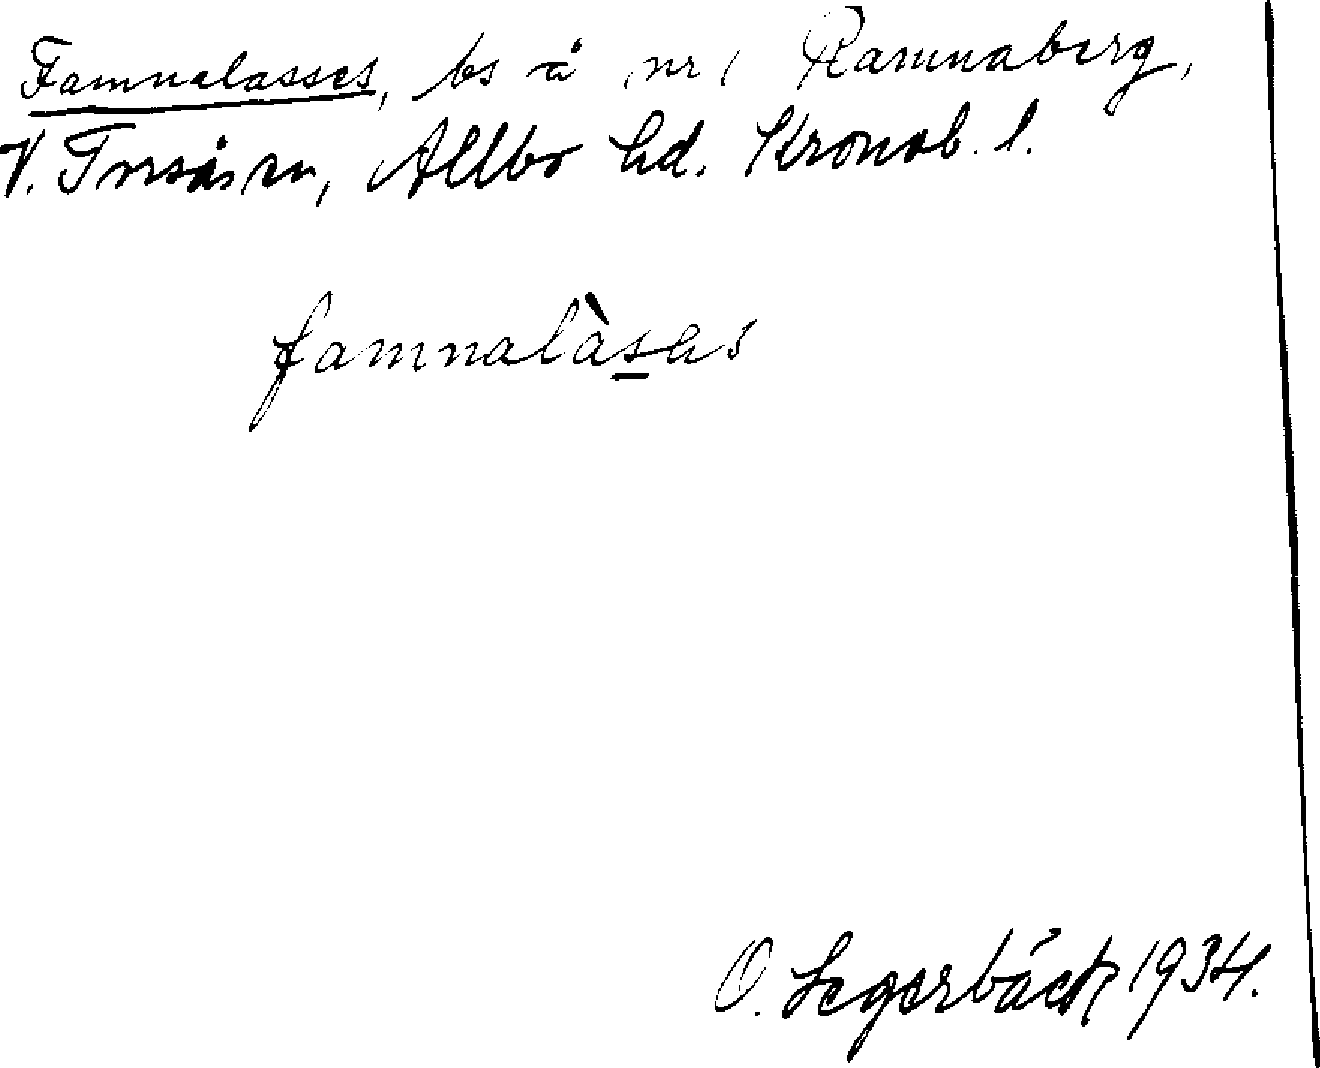 Famnalasses, bs å nr 1 Ramnaberg,
V. Torsås sn, Allbo hd. Kronob. l.
famnalàses
O. Segerbäck 1934.